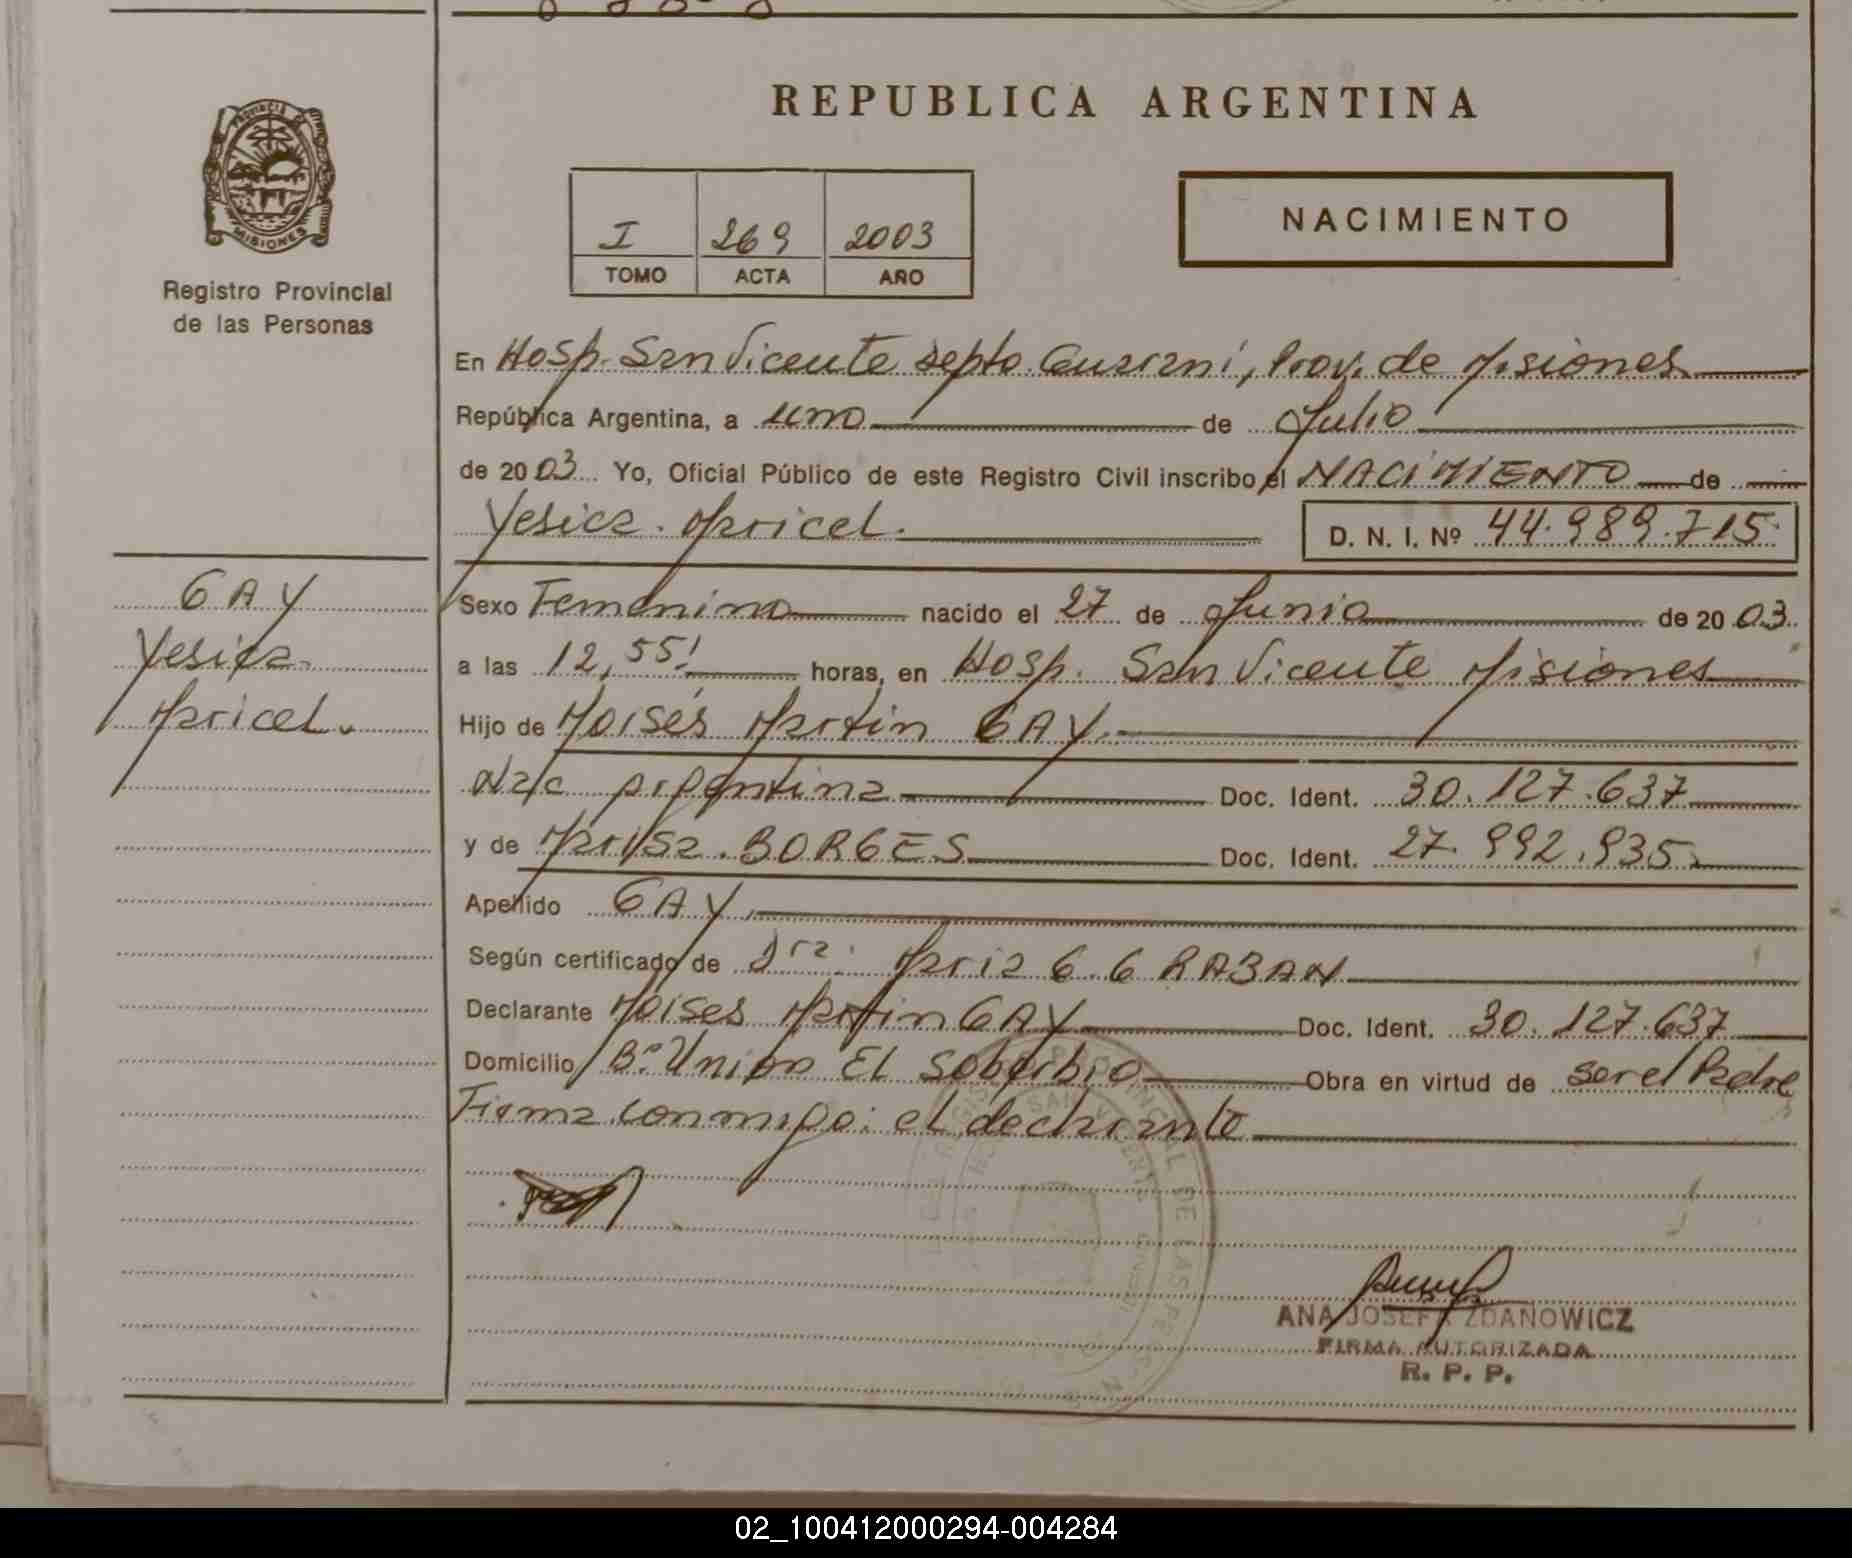 REPUBLICA ARGENTINA
PROVINCIA DE
MISIONES
Registro Provincial
de las Personas
I 269 2003
TOMO ACTA AÑO
NACIMIENTO
En Hosp. San Vicente Depto. Guaraní, Prov. de Misiones
República Argentina, a uno de Julio
de 2003 Yo, Oficial Público de este Registro Civil inscribo el NACIMIENTO de
Yesica Maricel. D. N. I. Nº 44.989.715
GAY
Yesica
Maricel.
Sexo Femenino nacido el 27 de Junio de 2003
a las 12,55' horas, en Hosp. San Vicente Misiones
Hijo de Moisés Martin GAY.
Nac argentina Doc. Ident. 30.127.637
y de Marisa BORGES Doc. Ident. 27.992.935
Apellido GAY
Según certificado de Dra. Maria G. GRABAN
Declarante Moises Martin GAY Doc. Ident. 30.127.637
Domicilio Bº Union El Soberbio Obra en virtud de ser el Padre
Firma conmigo: el declarante
ANA JOSEFA ZDANOWICZ
FIRMA AUTORIZADA
R. P. P.
02_100412000294-004284